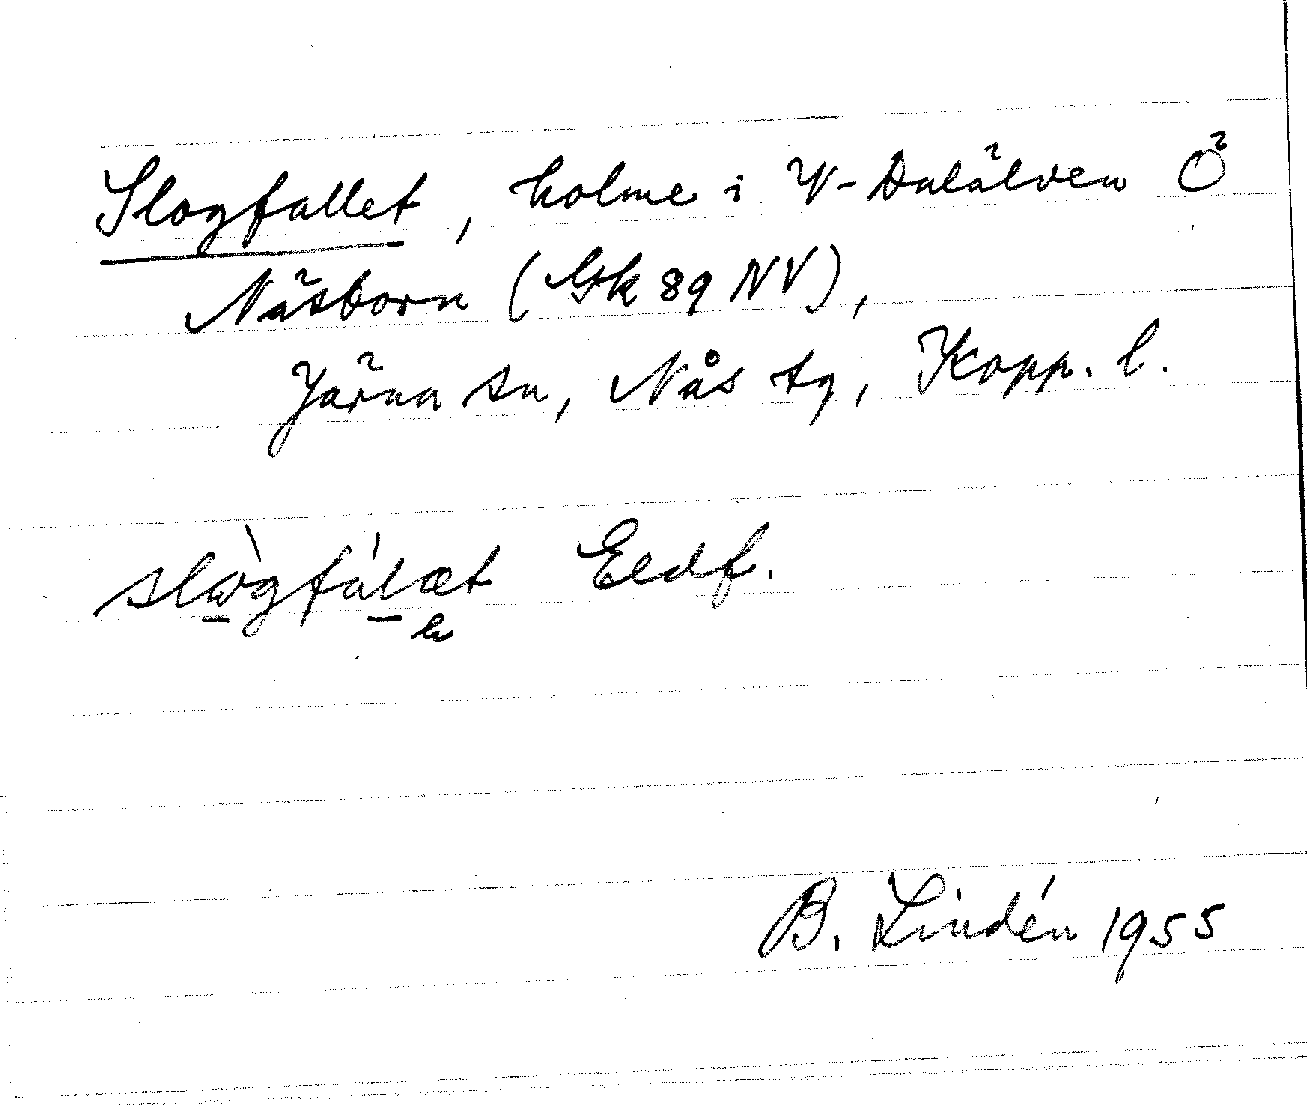 Slogfallet, holme i V-Dalälven Ö
Näsborn (Gk 89 NV),
Järna sn, Nås tg, Kopp. l.
slògfálæt Eldf.
B. Lindén 1955